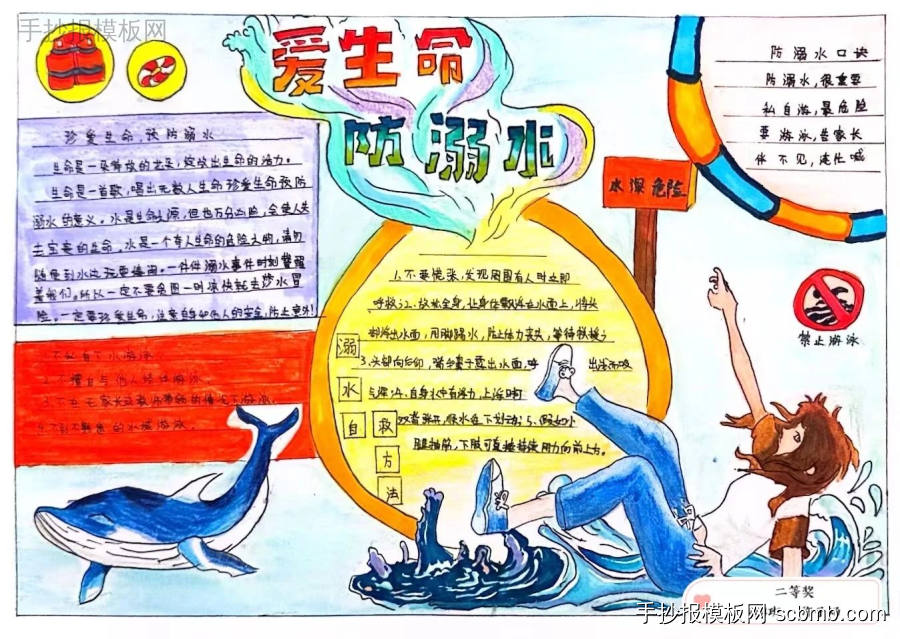 手抄报模板网
爱生命
防溺水
防溺水口诀
防溺水，很重要
私自游，最危险
要游泳，告家长
伴不见，连忙喊
珍爱生命，预防溺水
生命是一朵绽放的花朵，绽放出生命的活力。
生命是一首歌，唱出无数人生命 珍爱生命 预防
溺水的意义。水是生命之源，但也万分凶险，会使人失
去宝贵的生命，水是一个夺人生命的危险之物，请勿
随便到水边玩耍
一件件溺水事件时刻警醒
着我们。所以一定不要贪图一时凉快就去涉水冒
险。一定要珍爱生命，注意自身和他人的安全，防止意外！
水深危险
禁止游泳
1.不私自下水游泳
2.不擅自与他人结伴游泳
3.不在无家长或教师带领的情况下游泳.
4.不到不熟悉的水域游泳.
溺水自救方法
1.不要慌张，发现周围有人时立即
呼救；2、放松全身，让身体飘浮在水面上，将头
部浮出水面，用脚踢水，防止体力丧失，等待救援；
3.头部向后仰，
露出水面，呼
出
吸
4、自身水中有浮力，上浮时
双者张开，
在下划动；5、假如小
腿抽筋，下肢可
用力向前上方。
二等奖
手抄报模板网 scbmb.com